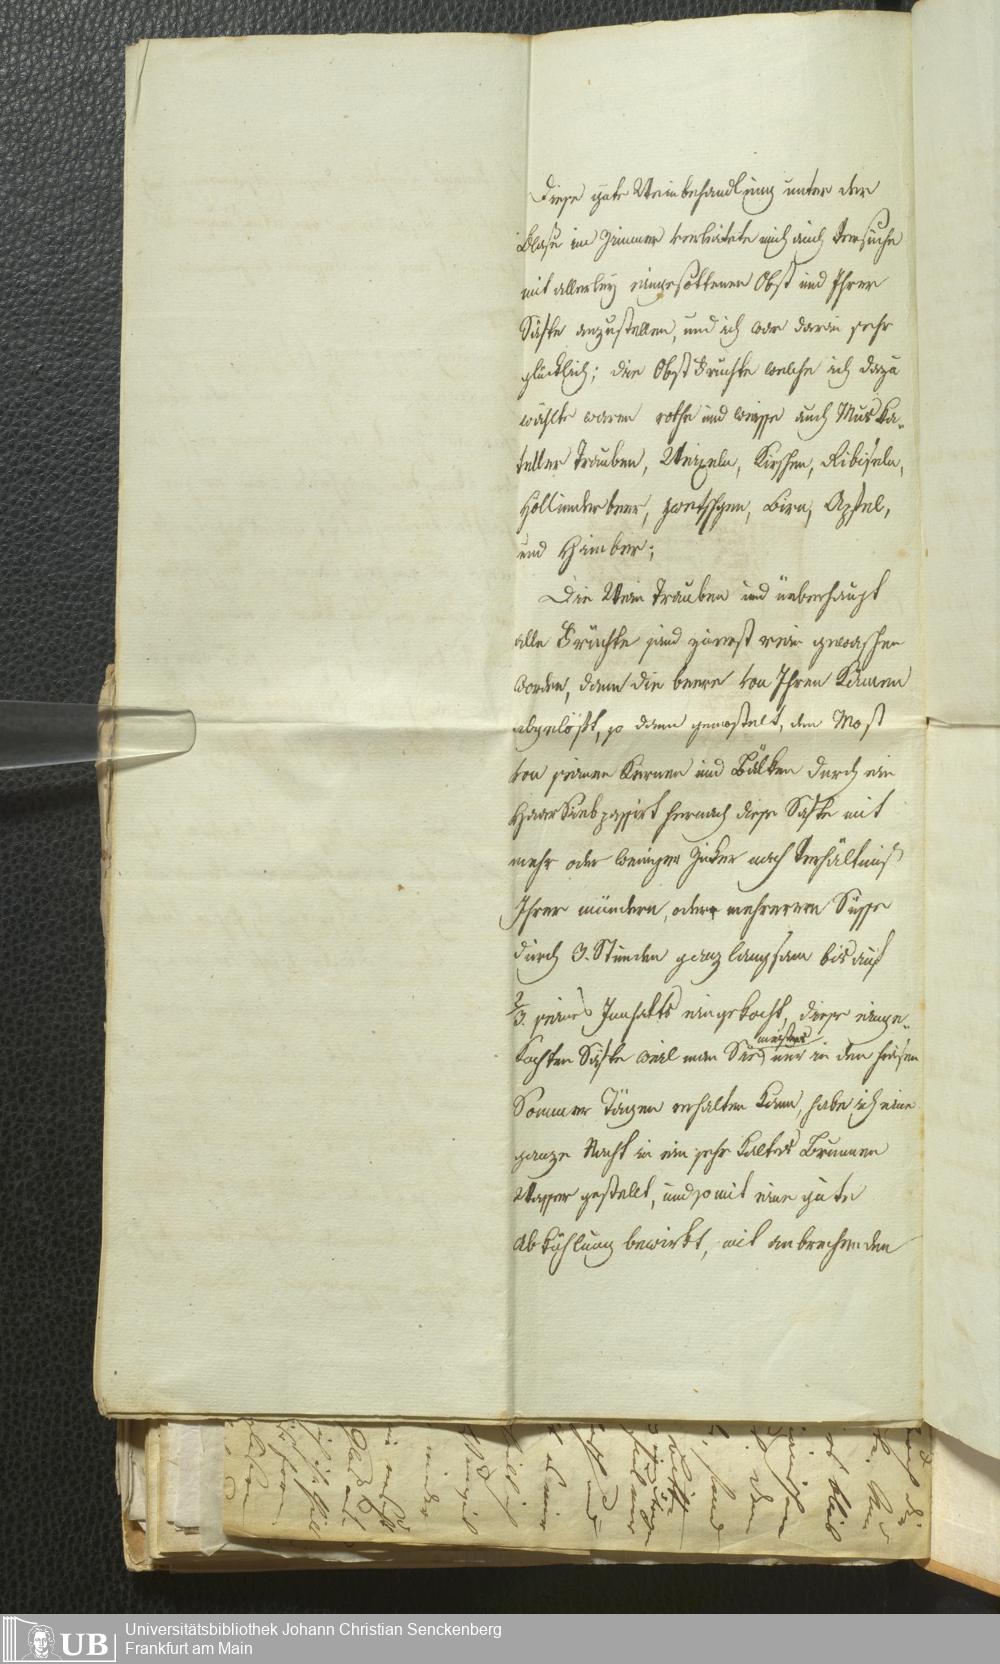 Diese gute Weinbehandlung unter der
Blase im Zimmer verleitete mich auch Versuche
mit allerley eingesottenen Obst und Ihrer
Säfte anzustellen, und ich war darin sehr
glücklich; die Obst Früchte welche ich dazu
wählte waren rothe und weisse auch Muska-
teller Trauben, Weixeln, Kirschen, Ribiseln,
Hollunderbeer, zwetschgen, Birn, Apfel,
und Himber;
Die Wein Trauben und üeberhaupt
alle Früchte sind zuerst rein gewaschen
worden, dann die beere von Ihren Kämen
abgelößt, so dann gemostelt, den Most
von seinen Kernen und Bälken durch ein
Haar Sieb passirt hernach diese Säfte mit
mehr oder weniger Zuker nach Verhältniß
Ihrer mindern, oder mehreren Süsse
durch 3. Stunden ganz langsam bis auf
2/3. seines Innhalts eingekocht, diese einge-
kochten Säfte weil man Sie meistens nur in den heisen
Sommer Tägen erhalten kann, habe ich eine
ganze Nacht in ein sehr kaltes Brunnen
Wasser gestellt, und somit eine gute
Abkühlung bewirkt, mit anbrechenden
UB
Universitätsbibliothek Johann Christian Senckenberg
Frankfurt am Main